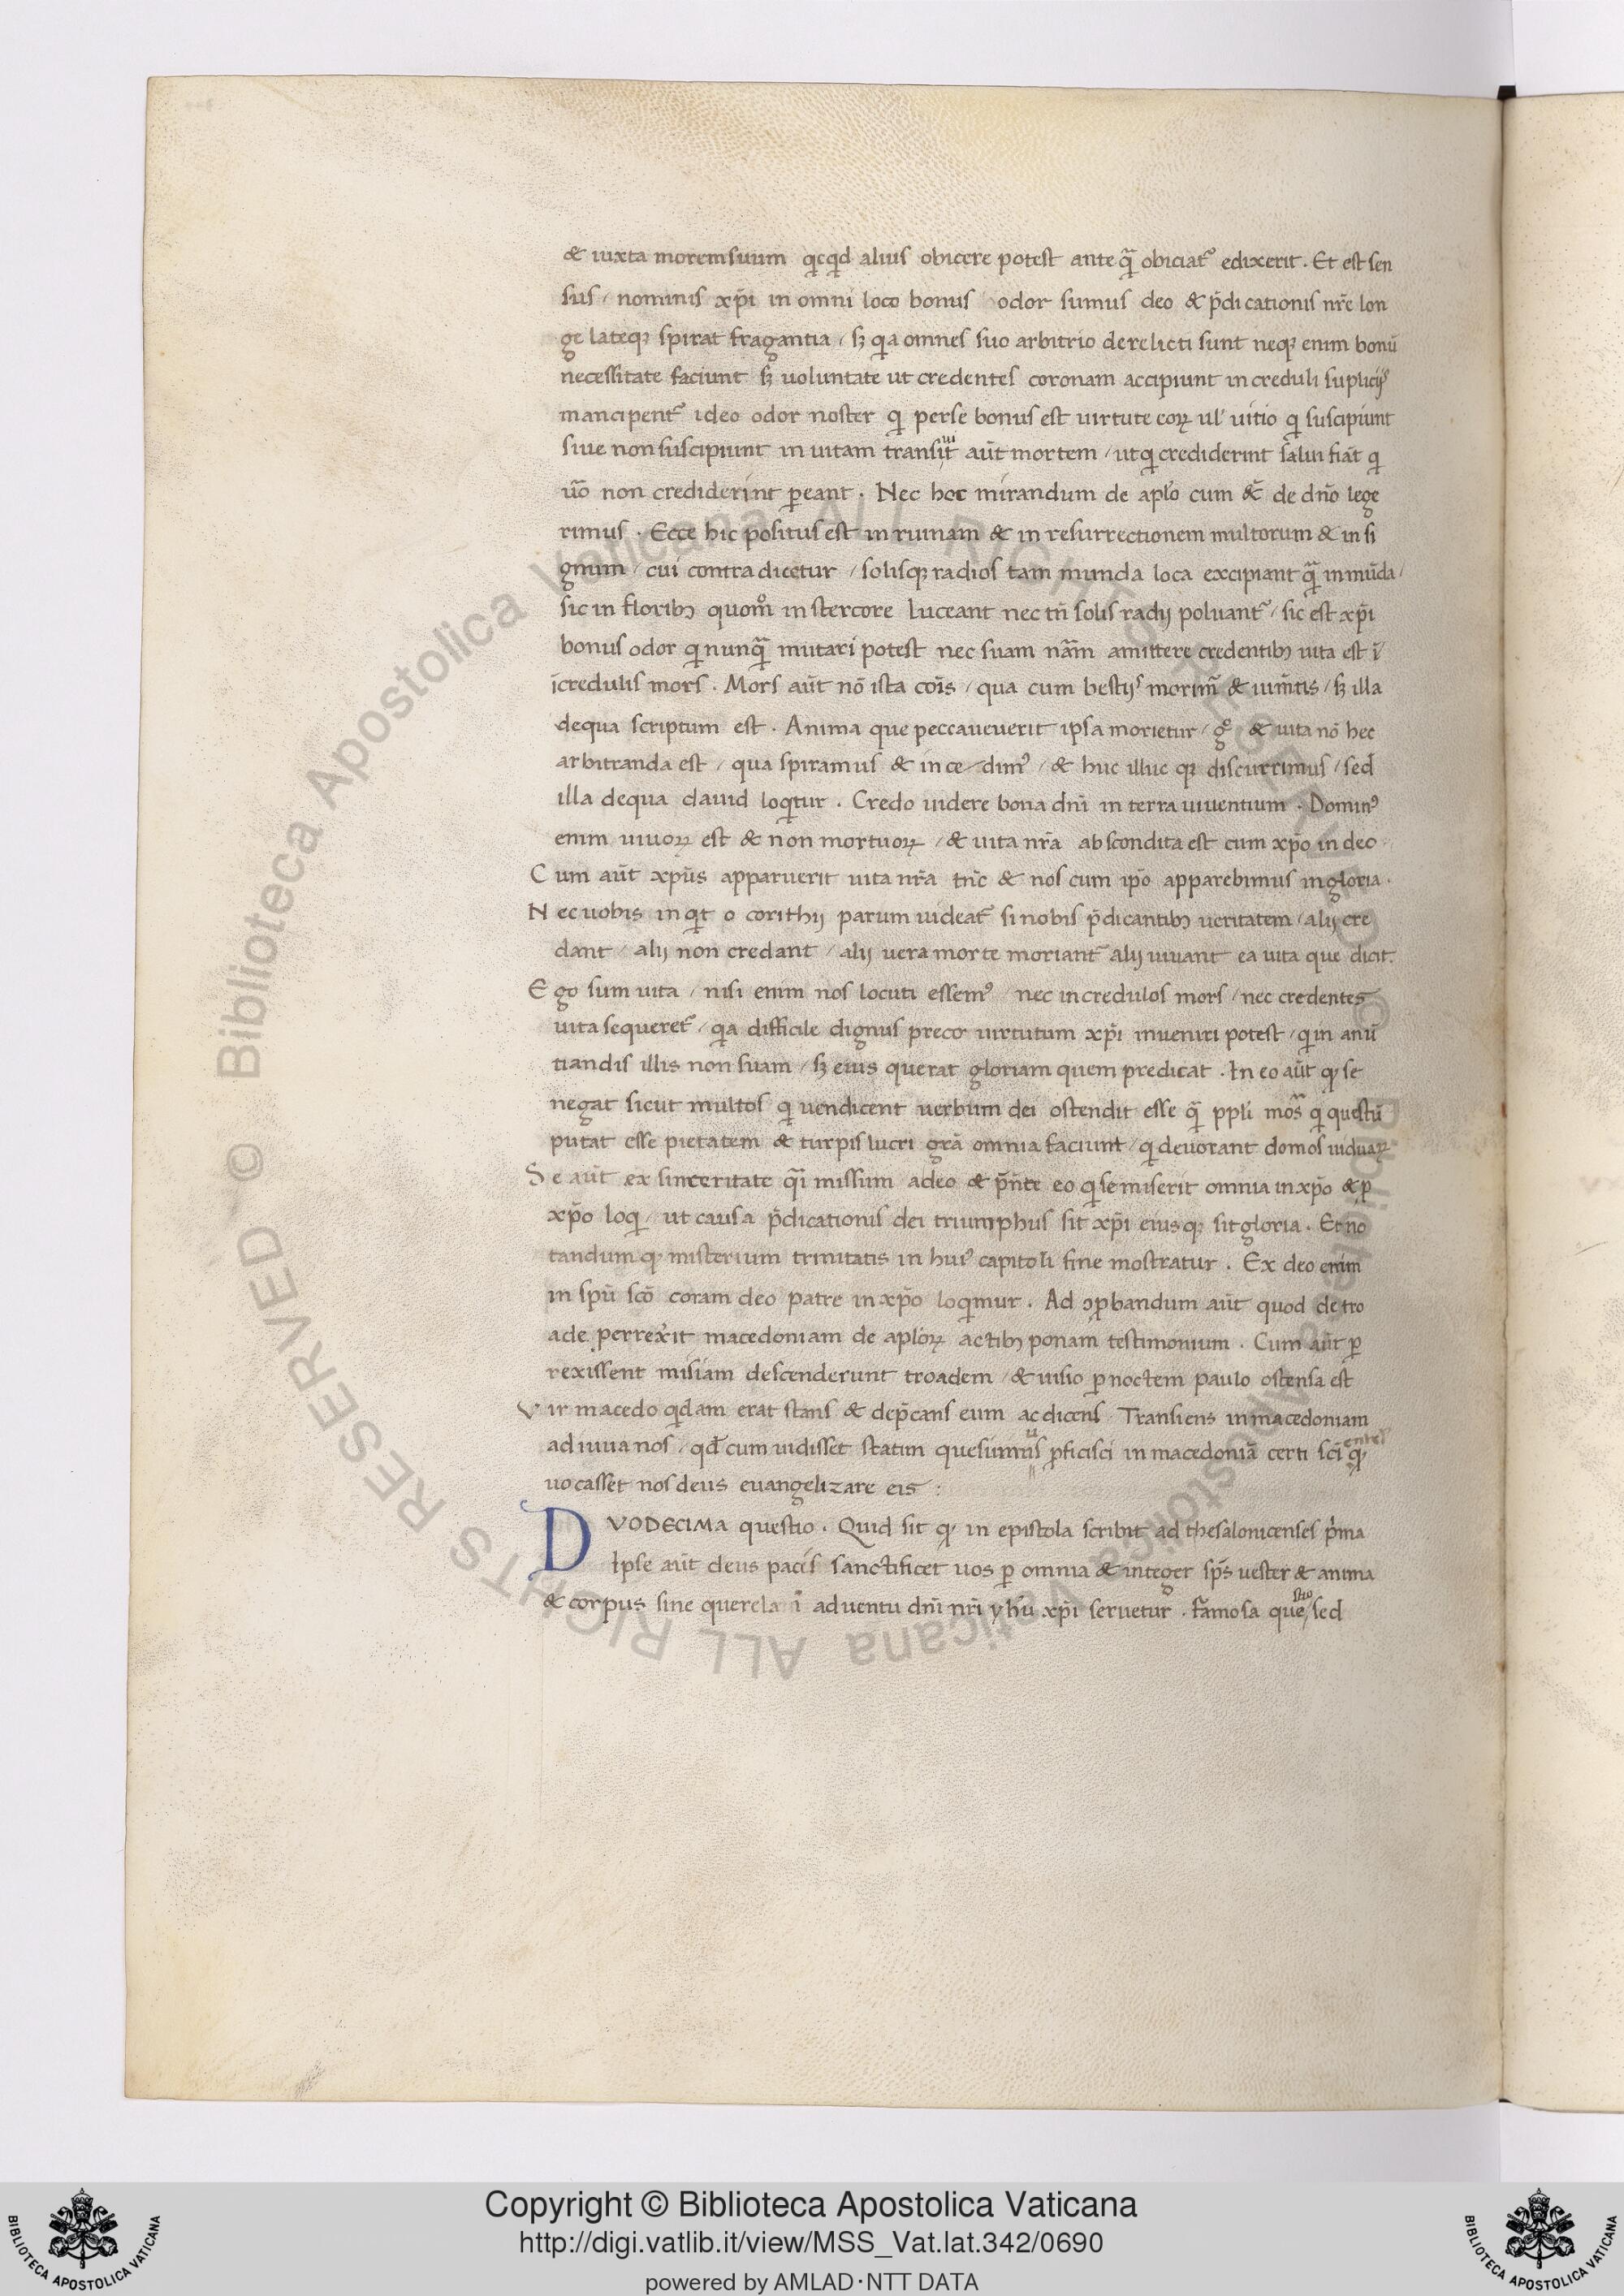 & iuxta morem suum qicqid alius obicere potest ante qã obiciat᷒ edixerit . Et est sen
sus / nominis xp̄i in omni loco bonus odor sumus deo & p̄dicationis nr̄e lon
ge lateqꝫ spirat fragantia / sꝫ qia omnes suo arbitrio derelicti sunt neqꝫ enim bonū
necessitate faciunt sꝫ uoluntate ut credentes coronam accipiunt increduli suplicijs
mancipent᷒ ideo odor noster qi per se bonus est uirtute eoꝝ ul' uitio qi suscipiunt
siue non suscipiunt in uitam transit aūt mortem / ut qi crediderint salui fiāt qi
uō non crediderint ꝑeant . Nec hoc mirandum de aplō cum & de dn̄o lege
rimus . Ecce hic positus est in ruinam & in resurrectionem multorum & in si
gnum / cui contradicetur / solisqꝫ radios tam munda loca excipiant qã inmūda /
sic in floribꝫ quom̊ in stercore luceant nec tn̄ solis radij poluant᷒ / sic est xp̄i
bonus odor qi nunqã mutari potest nec suam nãm amittere credentibꝫ uita est ī /
īcredulis mors . Mors aūt nō ista cōis / qua cum bestijs morim᷒ & uiuim᷒ / sꝫ illa
de qua scriptum est . Anima que peccaueuerit ipsa morietur / g̊ & uita nō hec
arbitranda est / qua spiramus & incedim᷒ / & huc illuc qꝫ discurrimus / sed
illa de qua dauid loqitur . Credo uidere bona dn̄i in terra uiuentium . Domin᷒
enim uiuoꝝ est & non mortuoꝝ / & uita nr̄a abscondita est cum xp̄o in deo
Cum aūt xp̄us apparuerit uita nr̄a tn̄c & nos cum ip̄o apparebimus in gloria .
Nec uobis inqit o corithij parum uideat᷒ si nobis p̄dicantibꝫ ueritatem / alij cre
dant / alij non credant / alij uera morte moriant᷒ alij uiuant ea uita que dicit .
Ego sum uita / nisi enim nos locuti essem᷒ / nec incredulos mors / nec credentes
uita sequeret᷒ / qia difficile dignus preco uirtutum xp̄i inueniri potest / qi in anū
tiandis illis non suam / sꝫ eius querat gloriam quem predicat . In eo aūt qꝫ se
negat sicut multos qi uendicent uerbum dei ostendit esse q̄ ppl'i mōs qi questū
putat esse pietatem & turpis lucri grā omnia faciunt / qi deuorant domos uiduaꝝ
Se aūt ex sinceritate qãi missum a deo & p̄nte eo qi se miserit omnia in xp̄o & ꝓ
xp̄o loqi / ut causa p̄dicationis dei triumphus sit xp̄i eiusqꝫ sit gloria . Et no
tandum qꝫ misterium trinitatis in hui᷒ capitoli fine mostratur . Ex deo enim
in spū scō coram deo patre in xp̄o loqimur . Ad ꝯꝓbandum aūt quod de tro
ade perrexit macedoniam de aploꝝ actibꝫ ponam testimonium . Cum aūt ꝑ
rexissent misiam descenderunt troadem / & uisio ꝑ noctem paulo ostensa est
Vir macedo qidam erat stans & dep̄cans eum ac dicens Transiens in macedoniam
adiuua nos / qd̄ cum uidisset statim quesimus ꝓficisci in macedoniā certi sci entes qꝫ
uocasset nos deus euangelizare eis :
DVODECIMA questio . Quid sit qꝫ in epistola scribit ad thesalonicenses pima
Ipse aūt deus pacis sanctificet uos ꝑ omnia & integer sp̄s uester & anima
& corpus sine querela ī aduentu dn̄i nr̄i yh̄u xp̄i seruetur . famosa questio / sed
Copyright © Biblioteca Apostolica Vaticana
http://digi.vatlib.it/view/MSS_Vat.lat.342/0690
powered by AMLAD·NTT DATA
BIBLIOTECA APOSTOLICA VATICANA
BIBLIOTECA APOSTOLICA VATICANA
© Biblioteca Apostolica Vaticana ALL RIGHTS RESERVED
© Biblioteca Apostolica Vaticana ALL RIGHTS RESERVED